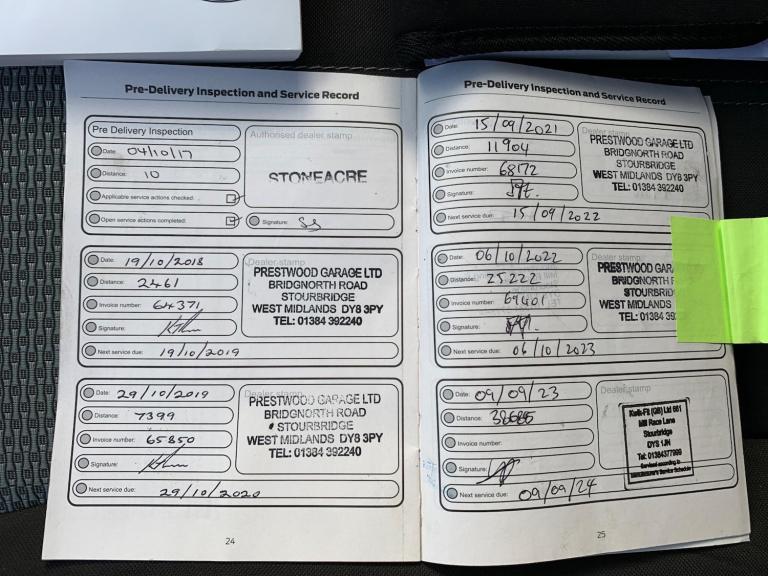 Pre-Delivery Inspection and Service Record
Pre Delivery Inspection
Date: 04/10/17
Distance: 10
Applicable service actions checked:
Open service actions completed:
Authorised dealer stamp
STONEACRE
Signature:
Date: 19/10/2018
Distance: 2461
Invoice number: 64371
Signature:
Next service due: 19/10/2019
Dealer stamp
PRESTWOOD GARAGE LTD
BRIDGNORTH ROAD
STOURBRIDGE
WEST MIDLANDS DY8 3PY
TEL: 01384 392240
Date: 29/10/2019
Distance: 7399
Invoice number: 65850
Signature:
Next service due: 29/10/2020
Dealer stamp
PRESTWOOD GARAGE LTD
BRIDGNORTH ROAD
STOURBRIDGE
WEST MIDLANDS DY8 3PY
TEL: 01384 392240
24
Pre-Delivery Inspection and Service Record
Date: 15/09/2021
Distance: 11904
Invoice number: 68172
Signature:
Next service due: 15/09/2022
Dealer stamp
PRESTWOOD GARAGE LTD
BRIDGNORTH ROAD
STOURBRIDGE
WEST MIDLANDS DY8 3PY
TEL: 01384 392240
Date: 06/10/2022
Distance: 25222
Invoice number: 69401
Signature:
Next service due: 06/10/2023
Dealer stamp
PRESTWOOD GARA
BRIDGNORTH R
STOURBRID
WEST MIDLANDS
TEL: 01384 39
Date: 09/09/23
Distance:
Invoice number:
Signature:
Next service due: 09/09/24
Dealer stamp
Kwik-Fit (GB) Ltd 661
Mill Race Lane
Stourbridge
DY8 1JN
Tel: 01384377999
Serviced according to
Manufacturer's Service Schedule
25